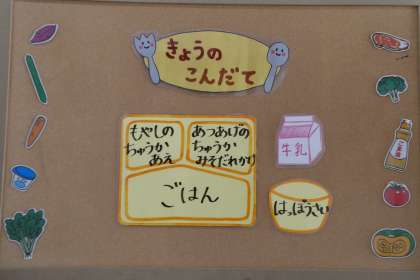 きょうの
こんだて
もやしの
ちゅうか
あえ
あつあげの
ちゅうか
みそだれがけ
ごはん
牛乳
はっぽうさい
ごま油